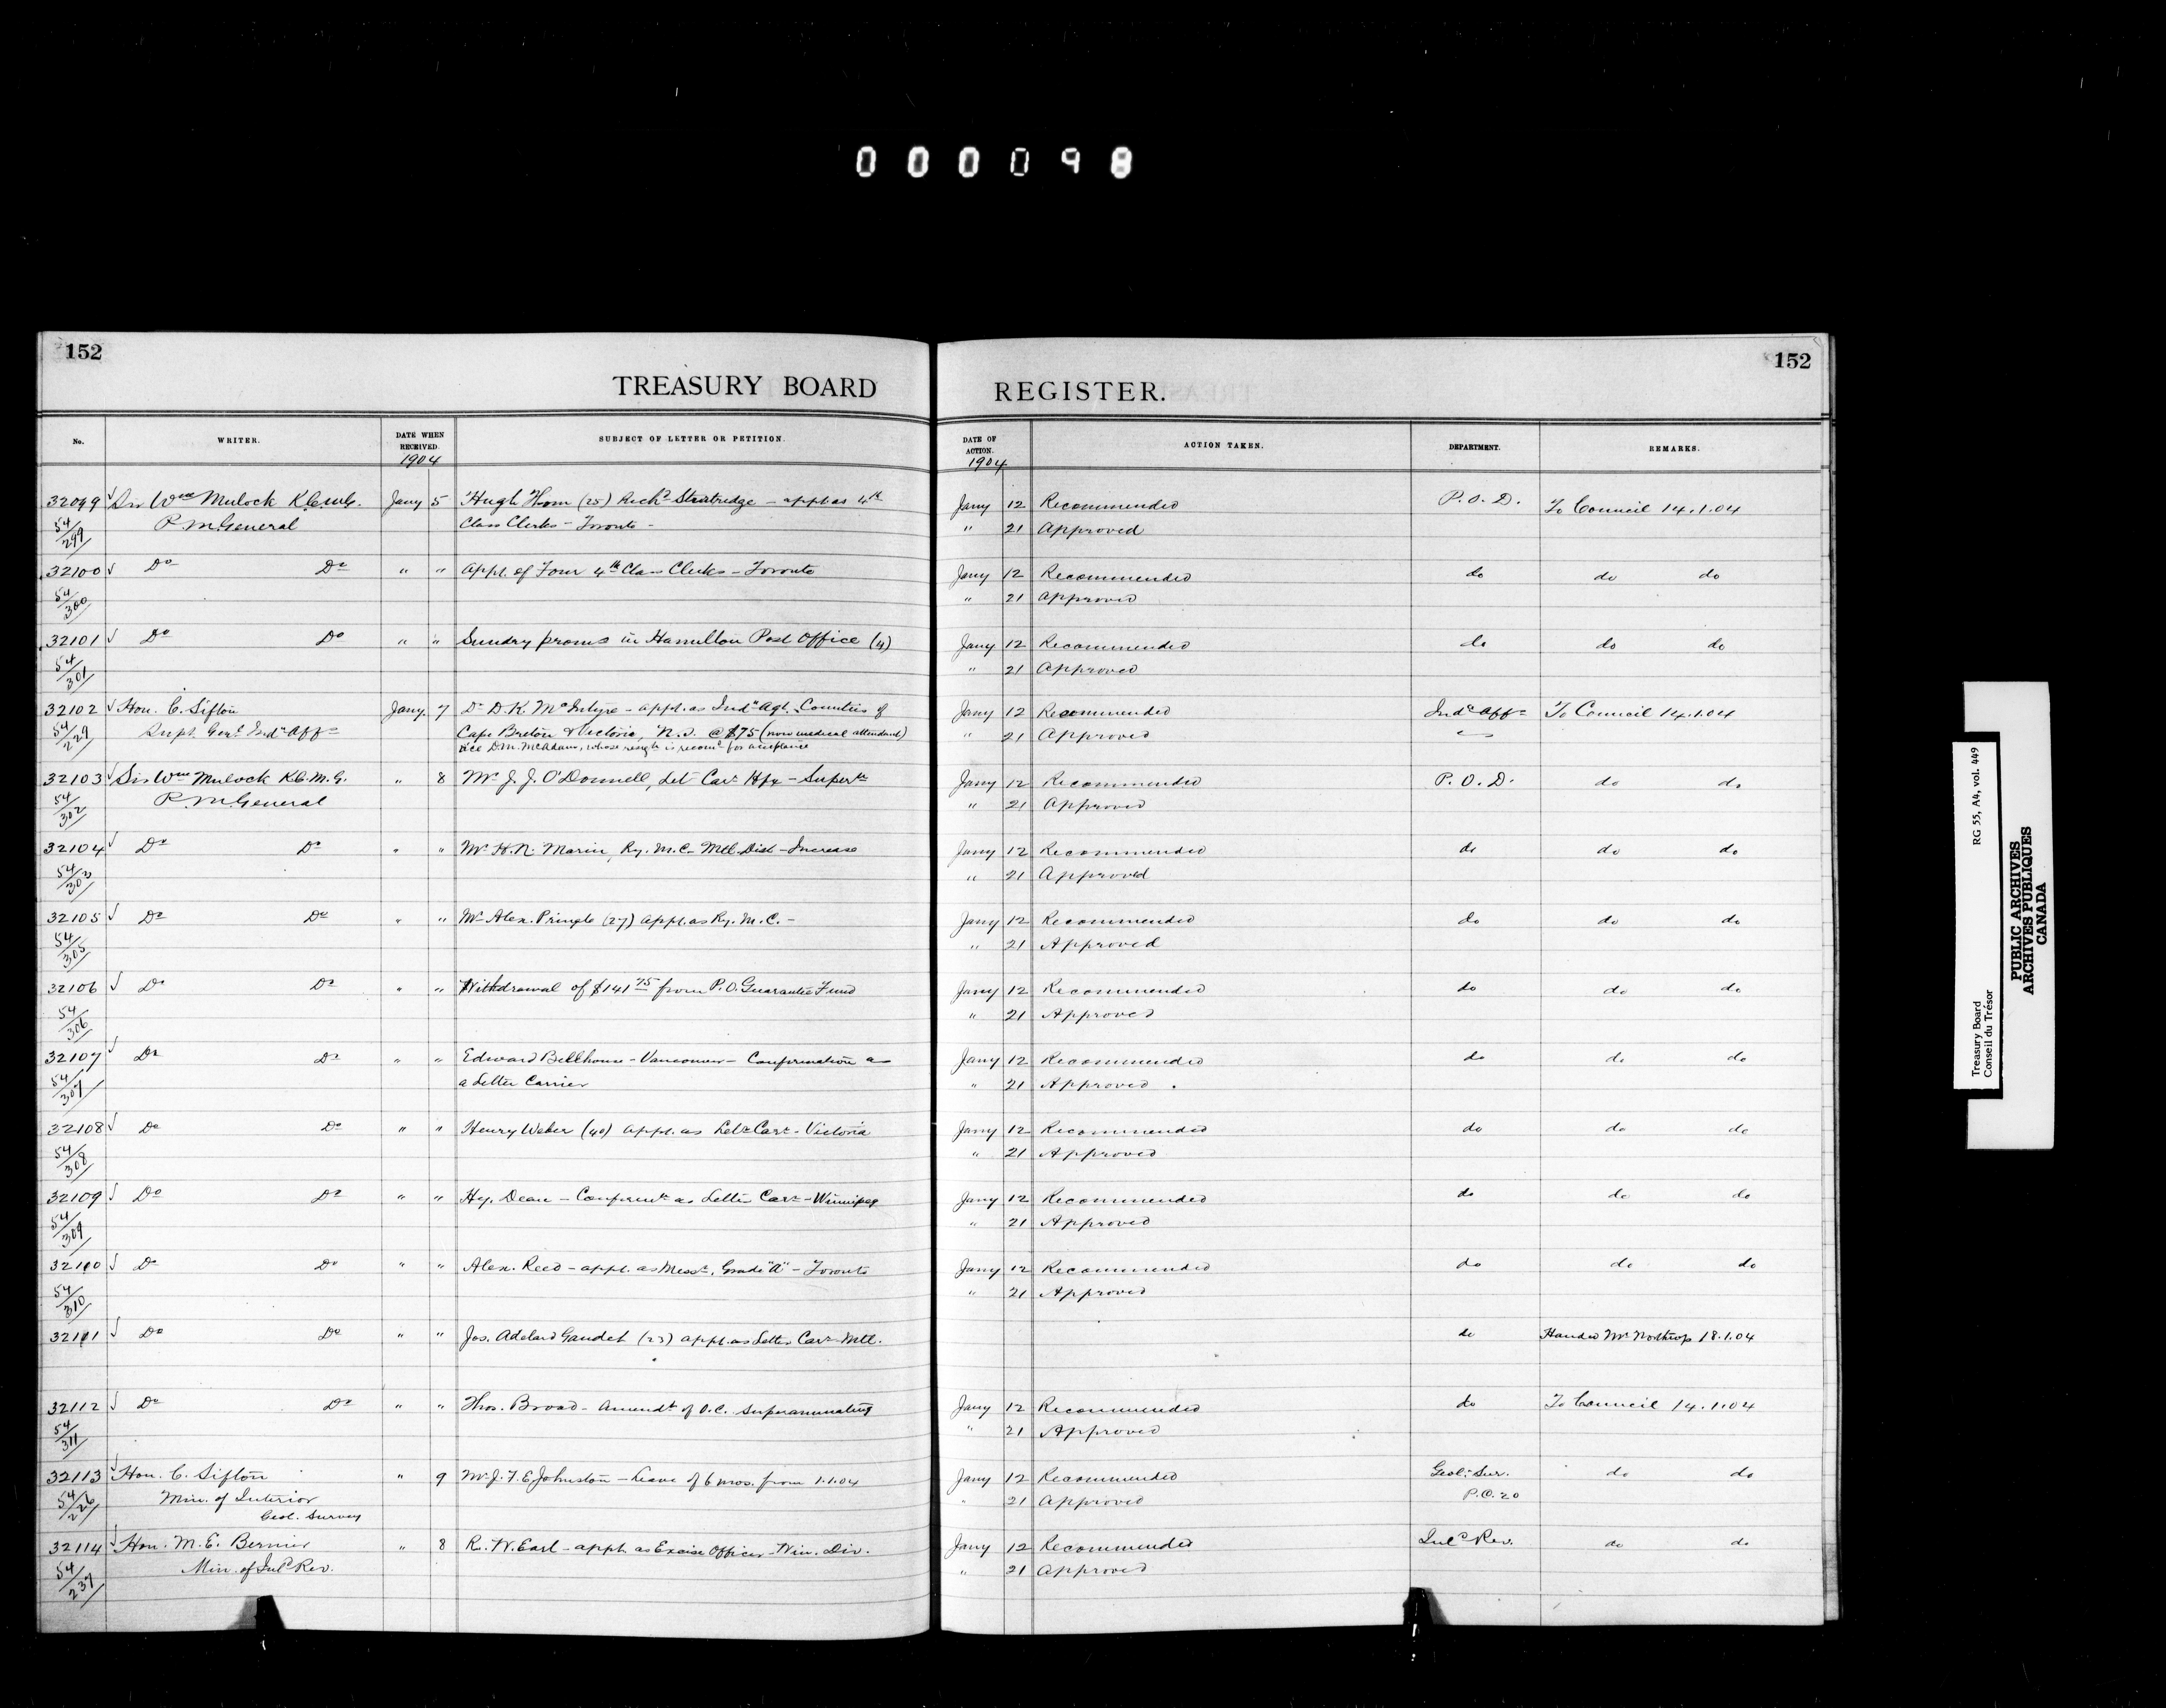 000098
152
TREASURY BOARD
No. WRITER. DATE WHEN RECEIVED. SUBJECT OF LETTER OR PETITION.
1904
32099 Sir Wm Mulock K.C.M.G. Jany 5 Hugh Horn (25) Richd - appt as 4th
54/299 P.M. General Class Clerks - Toronto -
32100 Do Do " " Appt. of Four 4th Class Clerks - Toronto
54/300
32101 Do Do " " Sundry proms in Hamilton Post Office (4)
54/301
32102 Hon. C. Sifton Jany. 7 Dr D.K. McIntyre - appt. as Indn Agt. Counties of
54/229 Supt. Genl Indn Affs Cape Breton & Victoria, N.S. @ $75 (now medical attendant)
vice D.M. McAdam, whose resigtn is recomd for acceptance
32103 Sir Wm Mulock K.C.M.G. " 8 Mr J.J. O'Donnell, Let Carr Hfx - Superan
54/302 P.M. General
32104 Do Do " " Mr H.N. Marin, Ry. M.C. Mtl Dist - Increase
54/303
32105 Do Do " " Mr Alex. Pringle (27) appt. as Ry. M.C. -
54/305
32106 Do Do " " Withdrawal of $141 75 from P.O. Guarantee Fund
54/306
32107 Do Do " " Edward Bellhouse - Vancouver - Confirmation as
54/307 a Letter Carrier
32108 Do Do " " Henry Weber (40) appt. as Letr Carr - Victoria
54/308
32109 Do Do " " Hy. Dean - Confirmtn as Letter Carr - Winnipeg
54/309
32110 Do Do " " Alex. Reed - appt. as Messr, Grade "A" - Toronto
54/310
32111 Do Do " " Jos. Adelard Gaudet (23) appt. as Letter Carr Mtl.
32112 Do Do " " Thos. Broad - Amendt of O.C. superannuating
54/311
32113 Hon. C. Sifton " 9 Mr J.F.E. Johnston - Leave of 6 mos. from 1.1.04
54/26 Min. of Interior
Geol. Survey
32114 Hon. M.E. Bernier " 8 R.W. Earl - appt. as Excise Officer Win. Div.
54/237 Min. of Inld Rev.
152
REGISTER.
DATE OF ACTION. ACTION TAKEN. DEPARTMENT. REMARKS.
1904
Jany 12 Recommended P.O.D. To Council 14.1.04
" 21 Approved
Jany 12 Recommended do do do
" 21 Approved
Jany 12 Recommended do do do
" 21 Approved
Jany 12 Recommended Indn Affs To Council 14.1.04
" 21 Approved
Jany 12 Recommended P.O.D. do do
" 21 Approved
Jany 12 Recommended do do do
" 21 Approved
Jany 12 Recommended do do do
" 21 Approved
Jany 12 Recommended do do do
" 21 Approved
Jany 12 Recommended do do do
" 21 Approved
Jany 12 Recommended do do do
" 21 Approved
Jany 12 Recommended do do do
" 21 Approved
Jany 12 Recommended do do do
" 21 Approved
do Handed Mr Northrop 18.1.04
Jany 12 Recommended do To Council 14.1.04
" 21 Approved
Jany 12 Recommended Geol: Sur. do do
" 21 Approved P.C. 20
Jany 12 Recommended Inld Rev. do do
" 21 Approved
Treasury Board RG 55, A4, vol. 449
Conseil du Trésor
PUBLIC ARCHIVES
ARCHIVES PUBLIQUES
CANADA